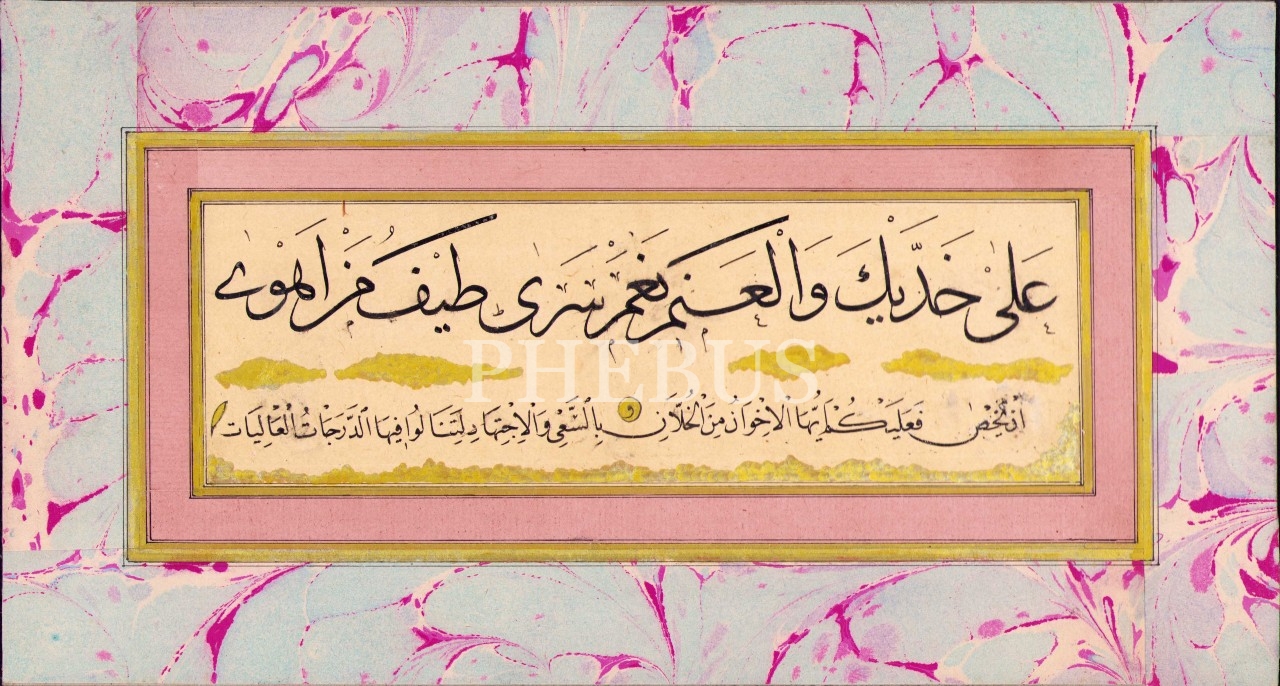 عَلٰى خَدَّيْكَ وَالْعَنَمِ نَعَمْ سَرٰى طَيْفُ مَنْ اَهْوٰى
PHEBUS
فَعَلَيْكُمْ اَيُّهَا الْاِخْوَانُ مِنَ الْخُلَّانِ بِالسَّعْىِ وَالْاِجْتِهَادِ لِتَنَالُوا فِيهَا الدَّرَجَاتُ الْعَالِيَات